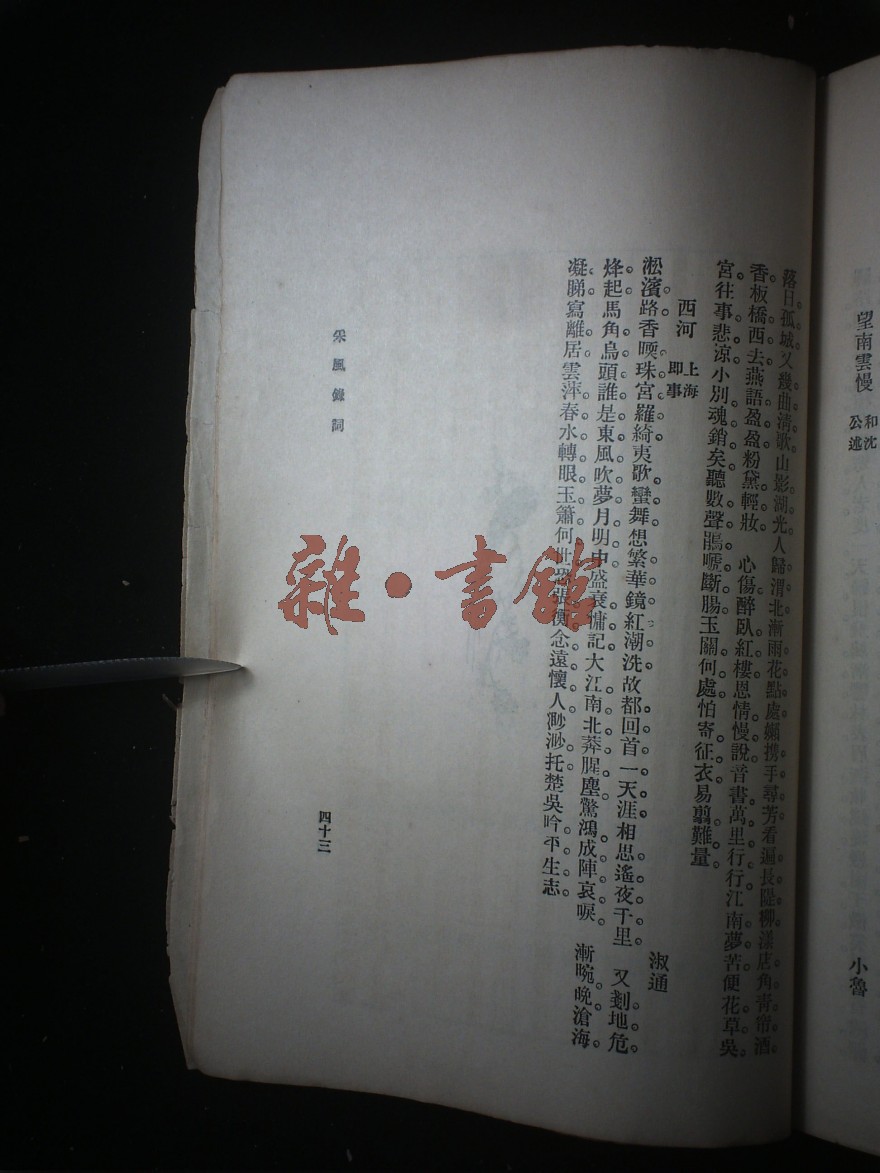 望南雲慢 和沈公述 小魯
落日孤城又幾曲清歌山影湖光人歸渭北漸雨花點處嬾携手尋芳看遍長隄柳漾店角靑帘酒
香板橋西去燕語盈盈粉黛輕妝 心傷醉臥紅樓恩情慢說音書萬里行行江南夢苦便花草吳
宮往事悲涼小別魂銷矣聽數聲鵑嘘斷腸玉關何處怕寄征衣易翦難量
西河 上海即事 淑通
淞濱路香暝珠宮羅綺夷歌蠻舞想繁華鏡紅潮洗故都回首一天涯相思遙夜千里 又剗地危
烽起馬角烏頭誰是東風吹夢月明中盛衰慵記大江南北莽腥塵驚鴻成陣哀唳 漸晼晚滄海
凝睇寫離居雲萍春水轉眼玉簫何世恐張衡念遠懷人渺渺托楚吳吟平生志
采風錄詞
四十三
雜·書館